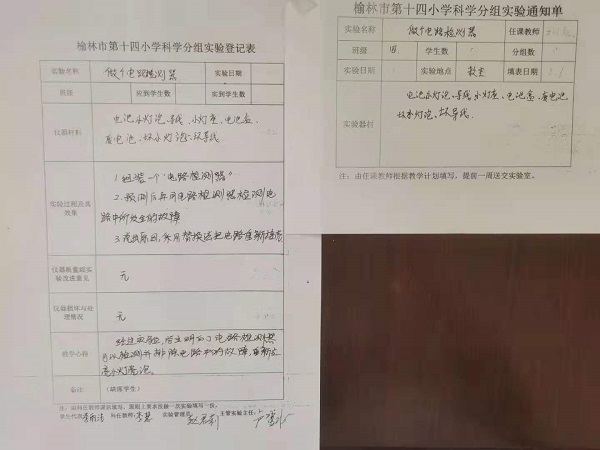 榆林市第十四小学科学分组实验登记表
实验名称 做个电路检测器 实验日期
班级 应到学生数 实到学生数
仪器材料 电池、小灯泡、导线、小灯座、电池盒、
废电池、坏小灯泡、坏导线
实验过程及其效果
1.组装一个"电路检测器"
2.预测后再用电路检测器检测电
路中所发生的故障
3.找出原因,采用替换法把电路重新接亮
仪器质量或实验改进意见 无
仪器损坏与处理情况 无
教学心得
经过实验,学生明白了电路检测器
可以检测并排除电路中的故障,重新点
亮小灯泡。
备注 (缺席学生)
学生代表 科任教师: 李慧 实验管理员: 主管实验主任:
榆林市第十四小学科学分组实验通知单
实验名称 做个电路检测器 任课教师
班级 四 学生数 分组数
实验日期 实验地点 教室 填表日期
实验器材 电池、小灯泡、导线、小灯座、电池盒、废电池
坏小灯泡、坏导线
注:由任课教师根据教学计划填写,提前一周送交实验室。